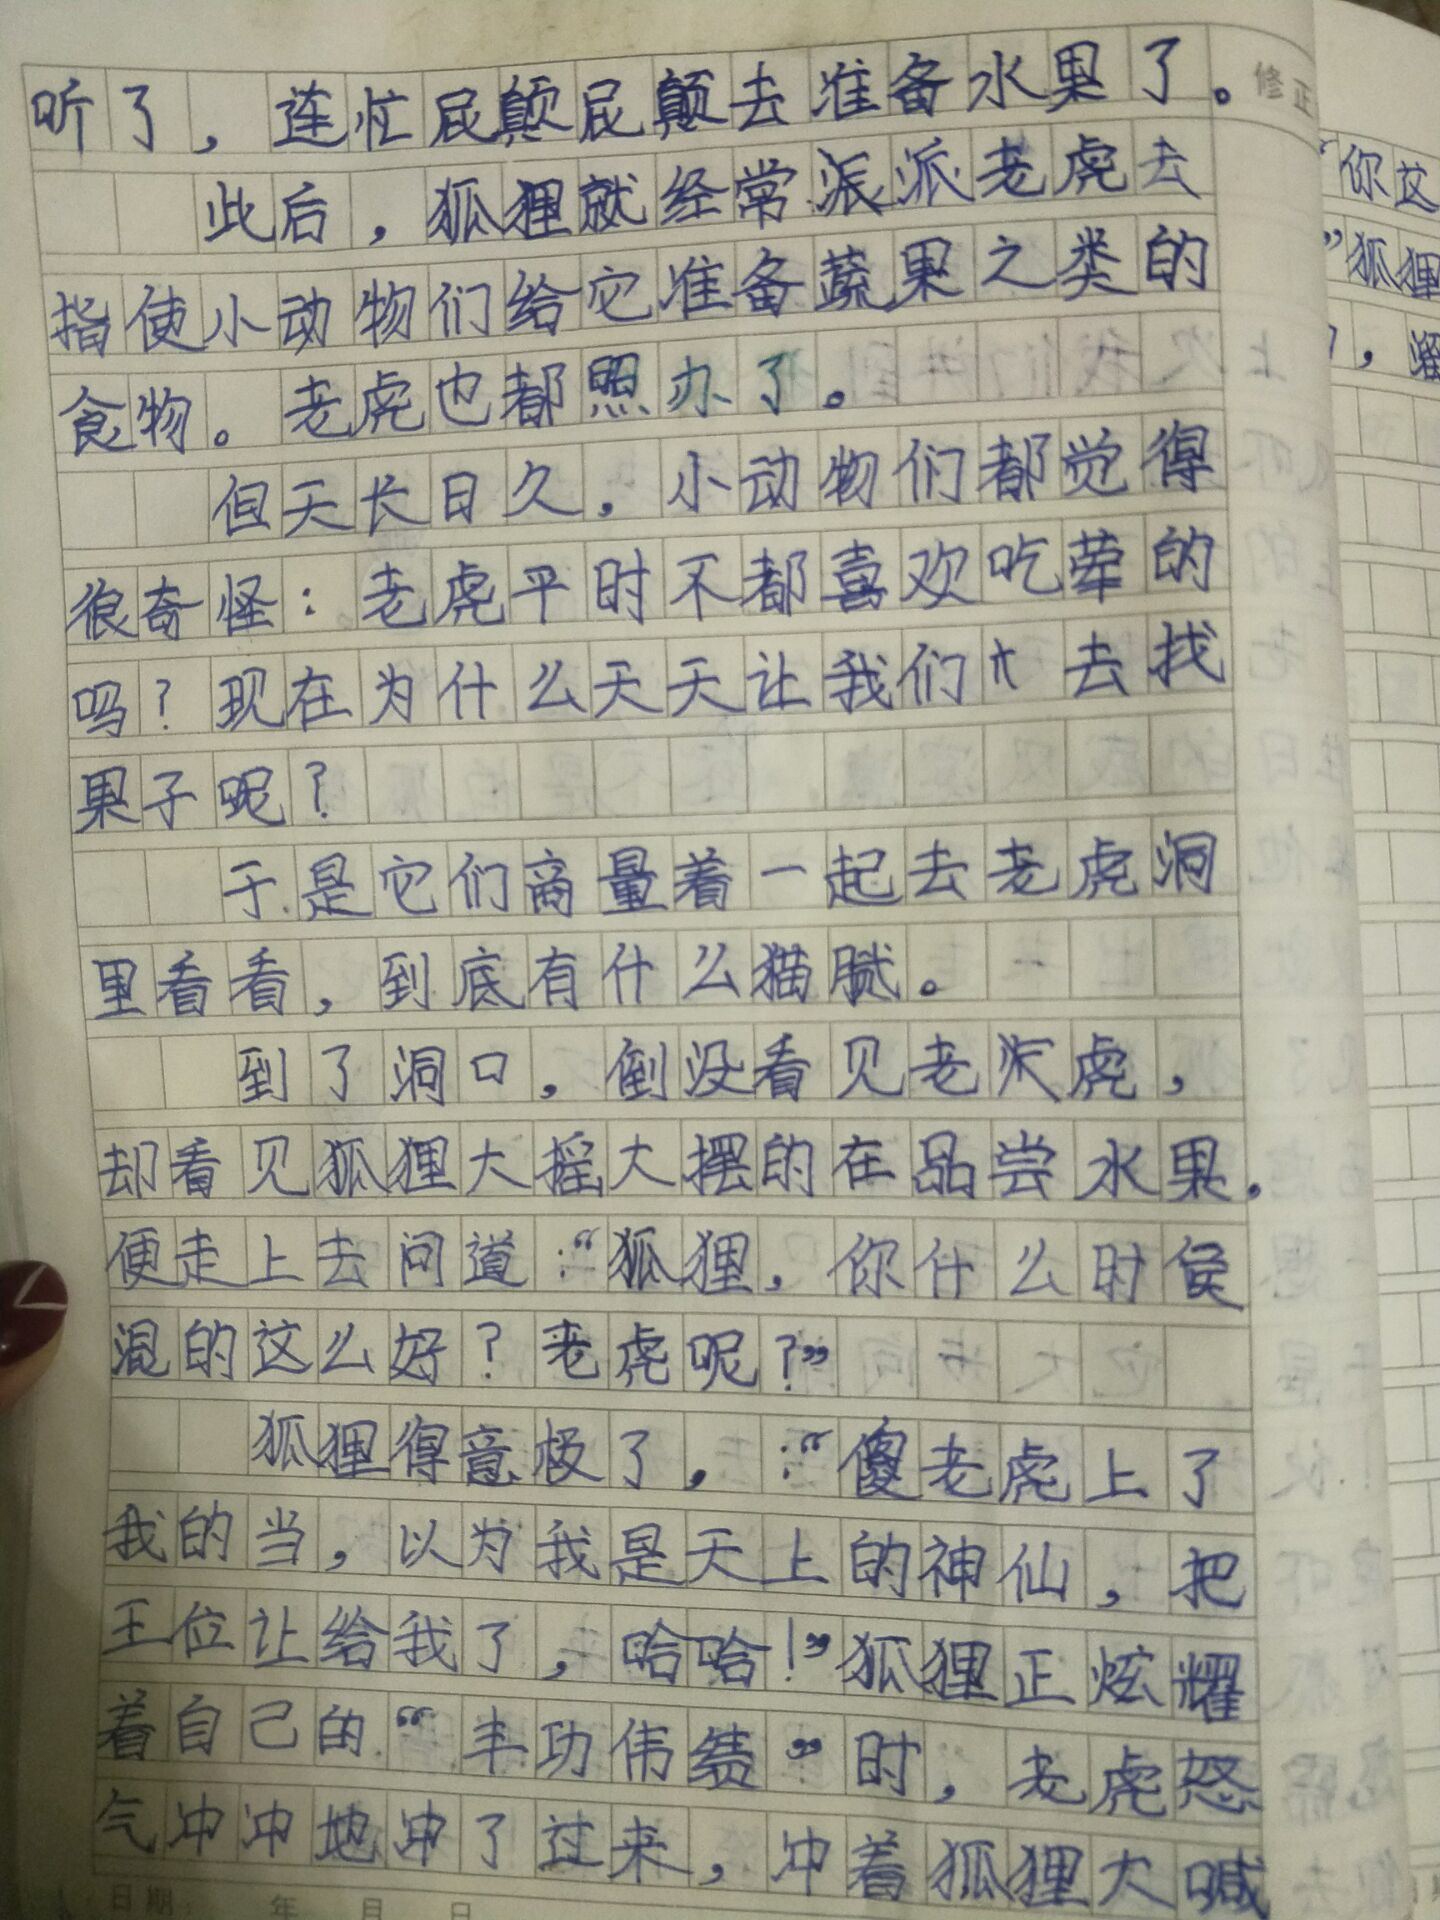 听了，连忙屁颠屁颠去准备水果了。
修正
此后，狐狸就经常派派老虎去
指使小动物们给它准备蔬果之类的
食物。老虎也都照办了。
但天长日久，小动物们都觉得
很奇怪：老虎平时不都喜欢吃荤的
吗？现在为什么天天让我们去找
果子呢？
于是它们商量着一起去老虎洞
里看看，到底有什么猫腻。
到了洞口，倒没看见老虎，
却看见狐狸大摇大摆的在品尝水果。
便走上去问道：“狐狸，你什么时侯
混的这么好？老虎呢？”
狐狸得意极了，：“傻老虎上了
我的当，以为我是天上的神仙，把
王位让给我了，哈哈！”狐狸正炫耀
着自己的“丰功伟绩”时，老虎怒
气冲冲地冲了过来，冲着狐狸大喊
日期： 年 月 日
“你这
”狐狸